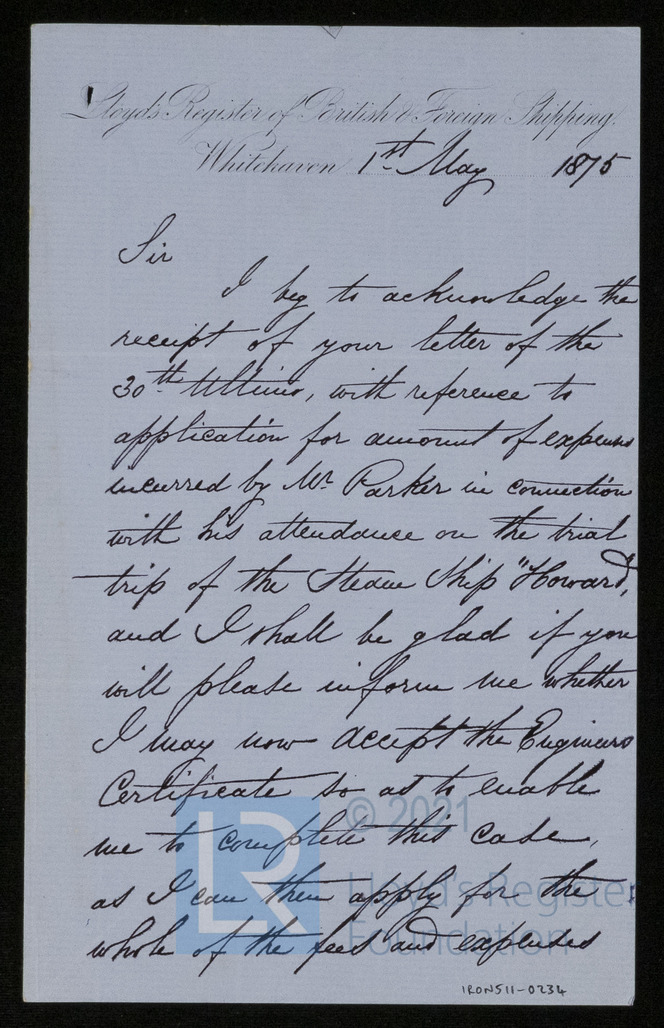 Lloyd's Register of British & Foreign Shipping.
Whitehaven 1st May 1875
Sir
I beg to acknowledge the
receipt of your letter of the
30th Ultimo, with reference to
application for amount of expenses
incurred by Mr Parker in connection
with his attendance on the trial
trip of the Steam Ship "Howard,
and I shall be glad if you
will please inform me whether
I may now accept the Engineers
Certificate so as to enable
me to complete this case,
as I can then apply for the
whole of the fees and expenses
LR © 2021
Lloyd's Register
Foundation
IRON511-0234